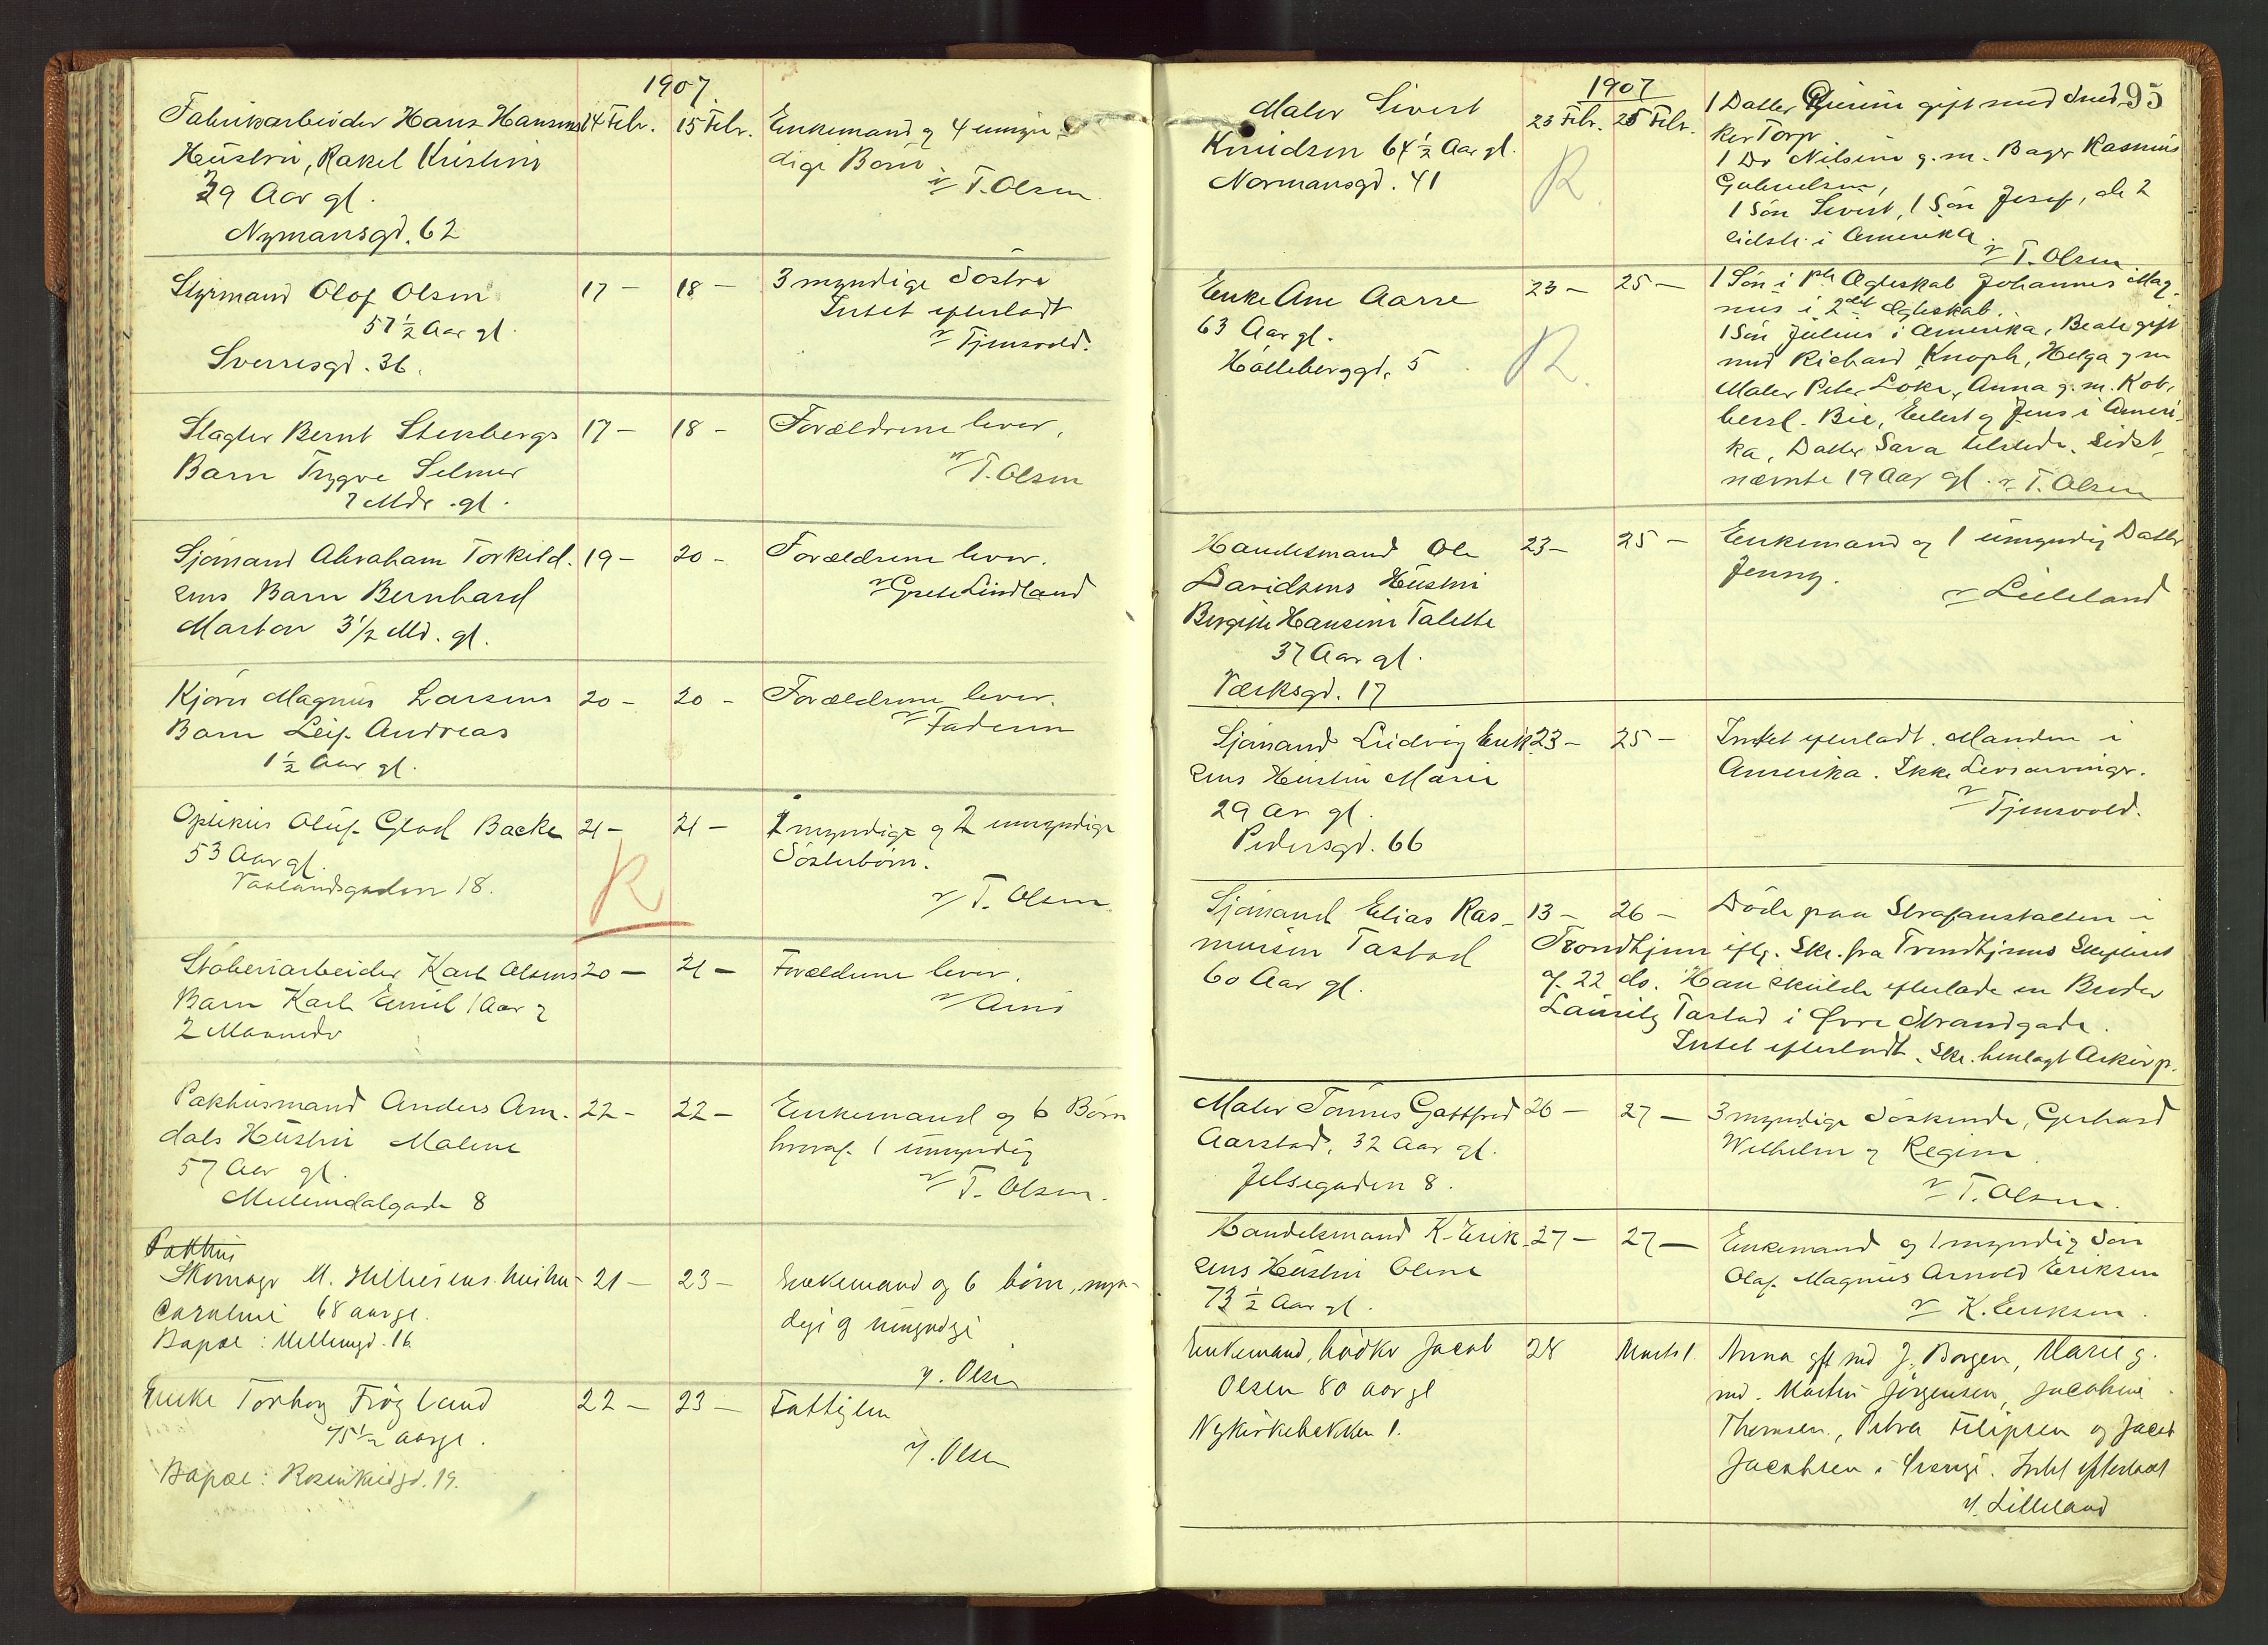 1907.
Fabrikarbeider Hans Hansens 14 Febr. 15 Febr. Enkemand og 4 umyn-
Hustru, Rakel Kristine dige Børn
39 Aar gl. v/ T. Olsen
Nymansgd. 62
Styrmand Olof Olsen 17 – 18 – 3 myndige Søstre
57 ½ Aar gl. Intet efterladt
Sverresgd. 36. v/ Tjensvold.
Slagter Bernt Stensbergs 17 – 18 – Forældrene lever,
Barn Trygve Selmer v/ T. Olsen
7 Mdr. gl.
Sjømand Abraham Torkild- 19 – 20 – Forældrene lever.
sens Barn Bernhard v/ Grete Lindland
Marton 3 1/2 Md. gl.
Kjører Magnus Larsens 20 – 20 – Forældrene lever.
Barn Leif Andreas v/ Faderen
1 ½ Aar gl.
Optikus Oluf Glad Backe 21 – 21 – 2 myndige og 2 umyndige
53 Aar gl. Søsterbørn.
Vaalandsgaden 18. R v/ T. Olsen
Støberiarbeider Karl Olsens 20 – 21 – Forældrene lever.
Barn Karl Emil 1 Aar og v/
2 Maaneder
Pakhusmand Anders Am- 22 – 22 – Enkemand og 6 Børn
dals Hustru Malene hvoraf 1 umyndig
57 Aar gl. v/ T. Olsen.
Mellemdalgade 8
Pakhus
Skomager M. hustru 21 – 23 – Enkemand og 6 børn, myn-
Caroline 68 aar gl. dige og umyndige
Bopæl: Møllegd. 16 v. Olsen
Enke Torborg Frøyland 22 – 23 – Fattiglem
75 ½ aar gl. v. Olsen
Bopæl: Rosenkildgd. 19.
1907 95
Maler Sivert 23 Febr. 25 Febr. 1 Datter gift med Sned-
Knudsen 64 ½ Aar gl. ker Torp
Normansgd. 41 R 1 Dr Nilsine g. m. Bager Rasmus
Gabrielsen,
1 Søn Sivert, 1 Søn Josef, de 2
sidste i Amerika.
v/ T. Olsen
Enke Ane Aarre 23 – 25 – 1 Søn i 1ste Ægteskab Johannes Mag-
63 Aar gl. nus i 2det Ægteskab.
Hølleberggd. 5 R. 1 Søn Julius i Amerika, Beate gift
med Richard Knoph, Helga g m
Maler Peter Loke, Anna g. m. Kob-
bersl. Bie, Eilert og Jens i Ameri-
ka, Datter Sara tilstede. Sidst-
nævnte 19 Aar gl. v. T. Olsen
Handelsmand Ole 23 – 25 – Enkemand og 1 umyndig Datter
Davidsens Hustru Jenny.
Birgitte Hansine Talette v/ Lilleland
37 Aar gl.
Værksgd. 17
Sjømand Ludvig Erik- 23 – 25 – Intet efterladt. Manden i
sens Hustru Marie Amerika. Ikke Livsarvinger.
29 Aar gl. v/ Tjensvold.
Pedersgd. 66
Sjømand Elias Ras- 13 – 26 – Døde paa Strafanstalten i
mussen Tastad Trondhjem iflg. Skr. fra Trondhjems Skifteret
60 Aar gl. af 22 ds. Han skulde efterlade en Broder
Lauritz Tastad i Øvre Strandgade.
Intet efterladt. Skr. henlagt Arkiv p.
Maler Tønnes Gottfred 26 – 27 – 3 myndige Søskende, Gerhard
Aarstad, 32 Aar gl. Wilhelm og Regine
Jelsegaden 8. v/ T. Olsen.
Handelsmand K. Erik- 27 – 27 – Enkemand og 1 myndig Søn
sens Hustru Oline Olaf Magnus Arnold Eriksen
73 ½ Aar gl. v/ K. Eriksen.
Enkemand, bødker Jacob 28 Marts 1. Anna gft med J. Borgen, Marie g.
Olsen 80 aar gl med. Martin Jørgensen, Jacobine
Nykirkebakken 1. Thomsen, Petra Filipsen og Jacob
Jacobsen i Sverige. Intet efterladt
v. Lilleland